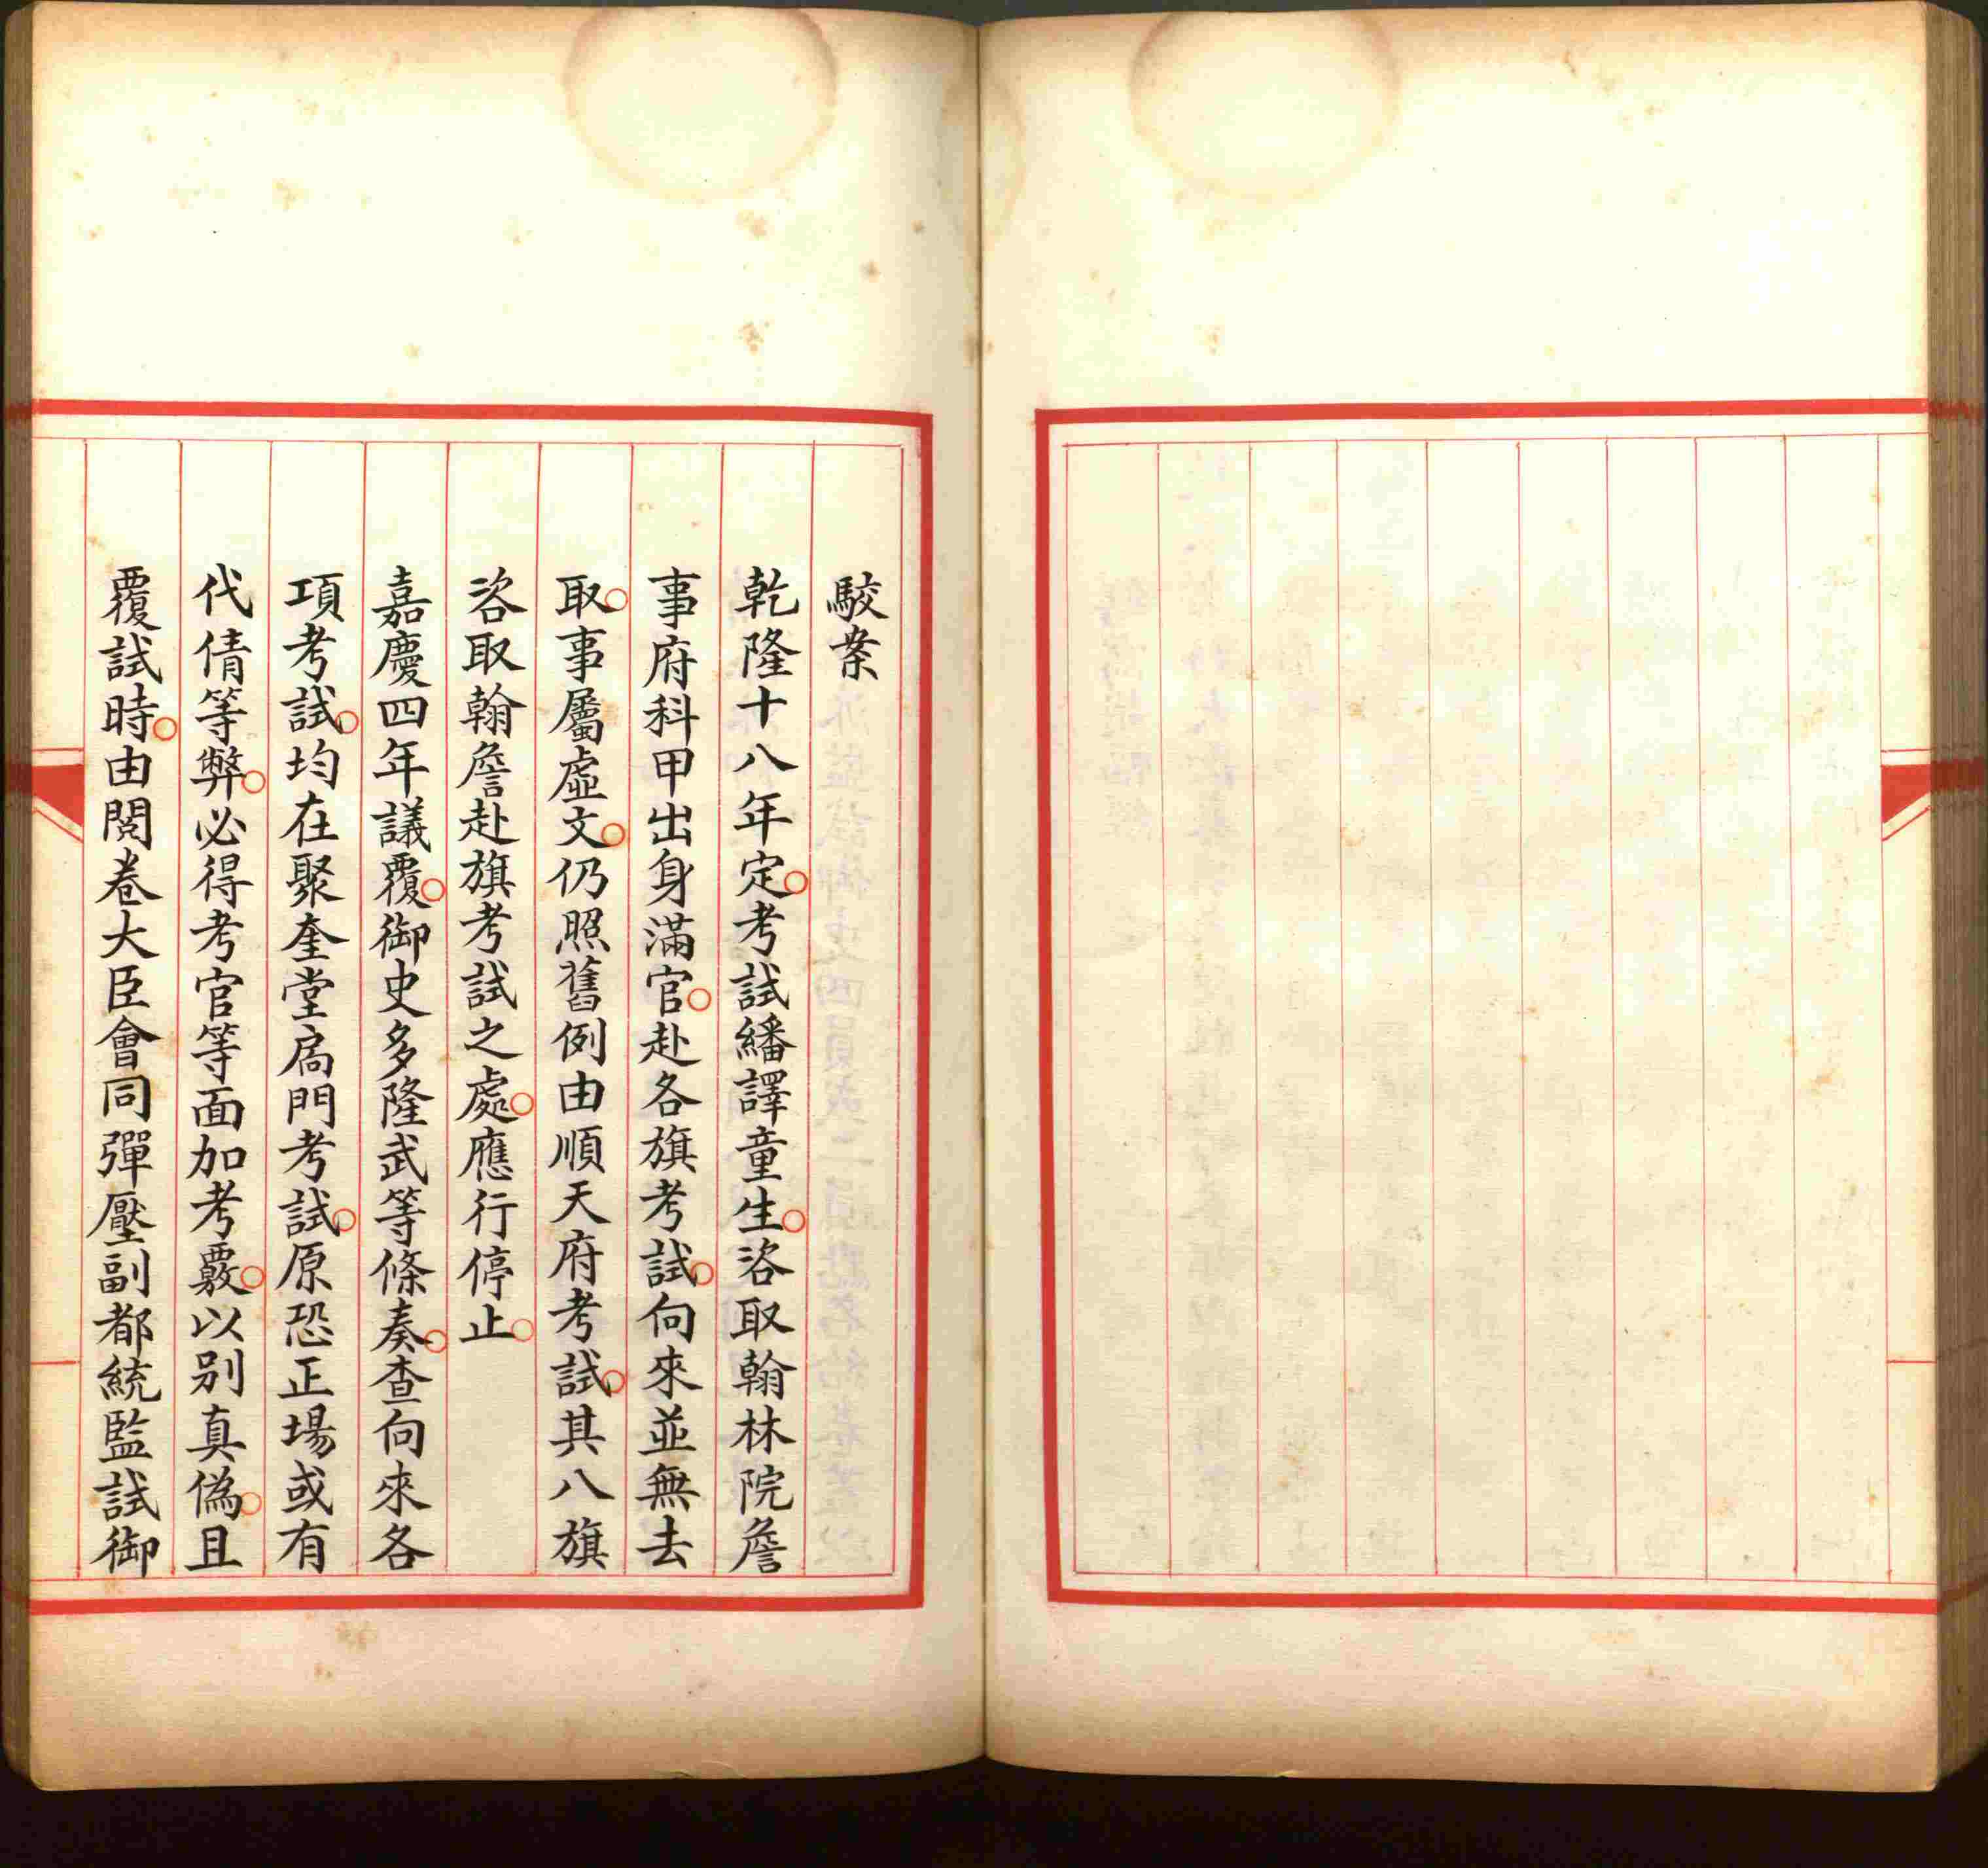 駮案
乾隆十八年定考試繙譯童生咨取翰林院詹
事府科甲出身滿官赴各旗考試向來並無去
取事屬虛文仍照舊例由順天府考試其八旗
咨取翰詹赴旗考試之處應行停止
嘉慶四年議覆御史多隆武等條奏查向來各
項考試均在聚奎堂扃門考試原恐正場或有
代倩等弊必得考官等面加考覈以別真偽且
覆試時由閱卷大臣會同彈壓副都統監試御